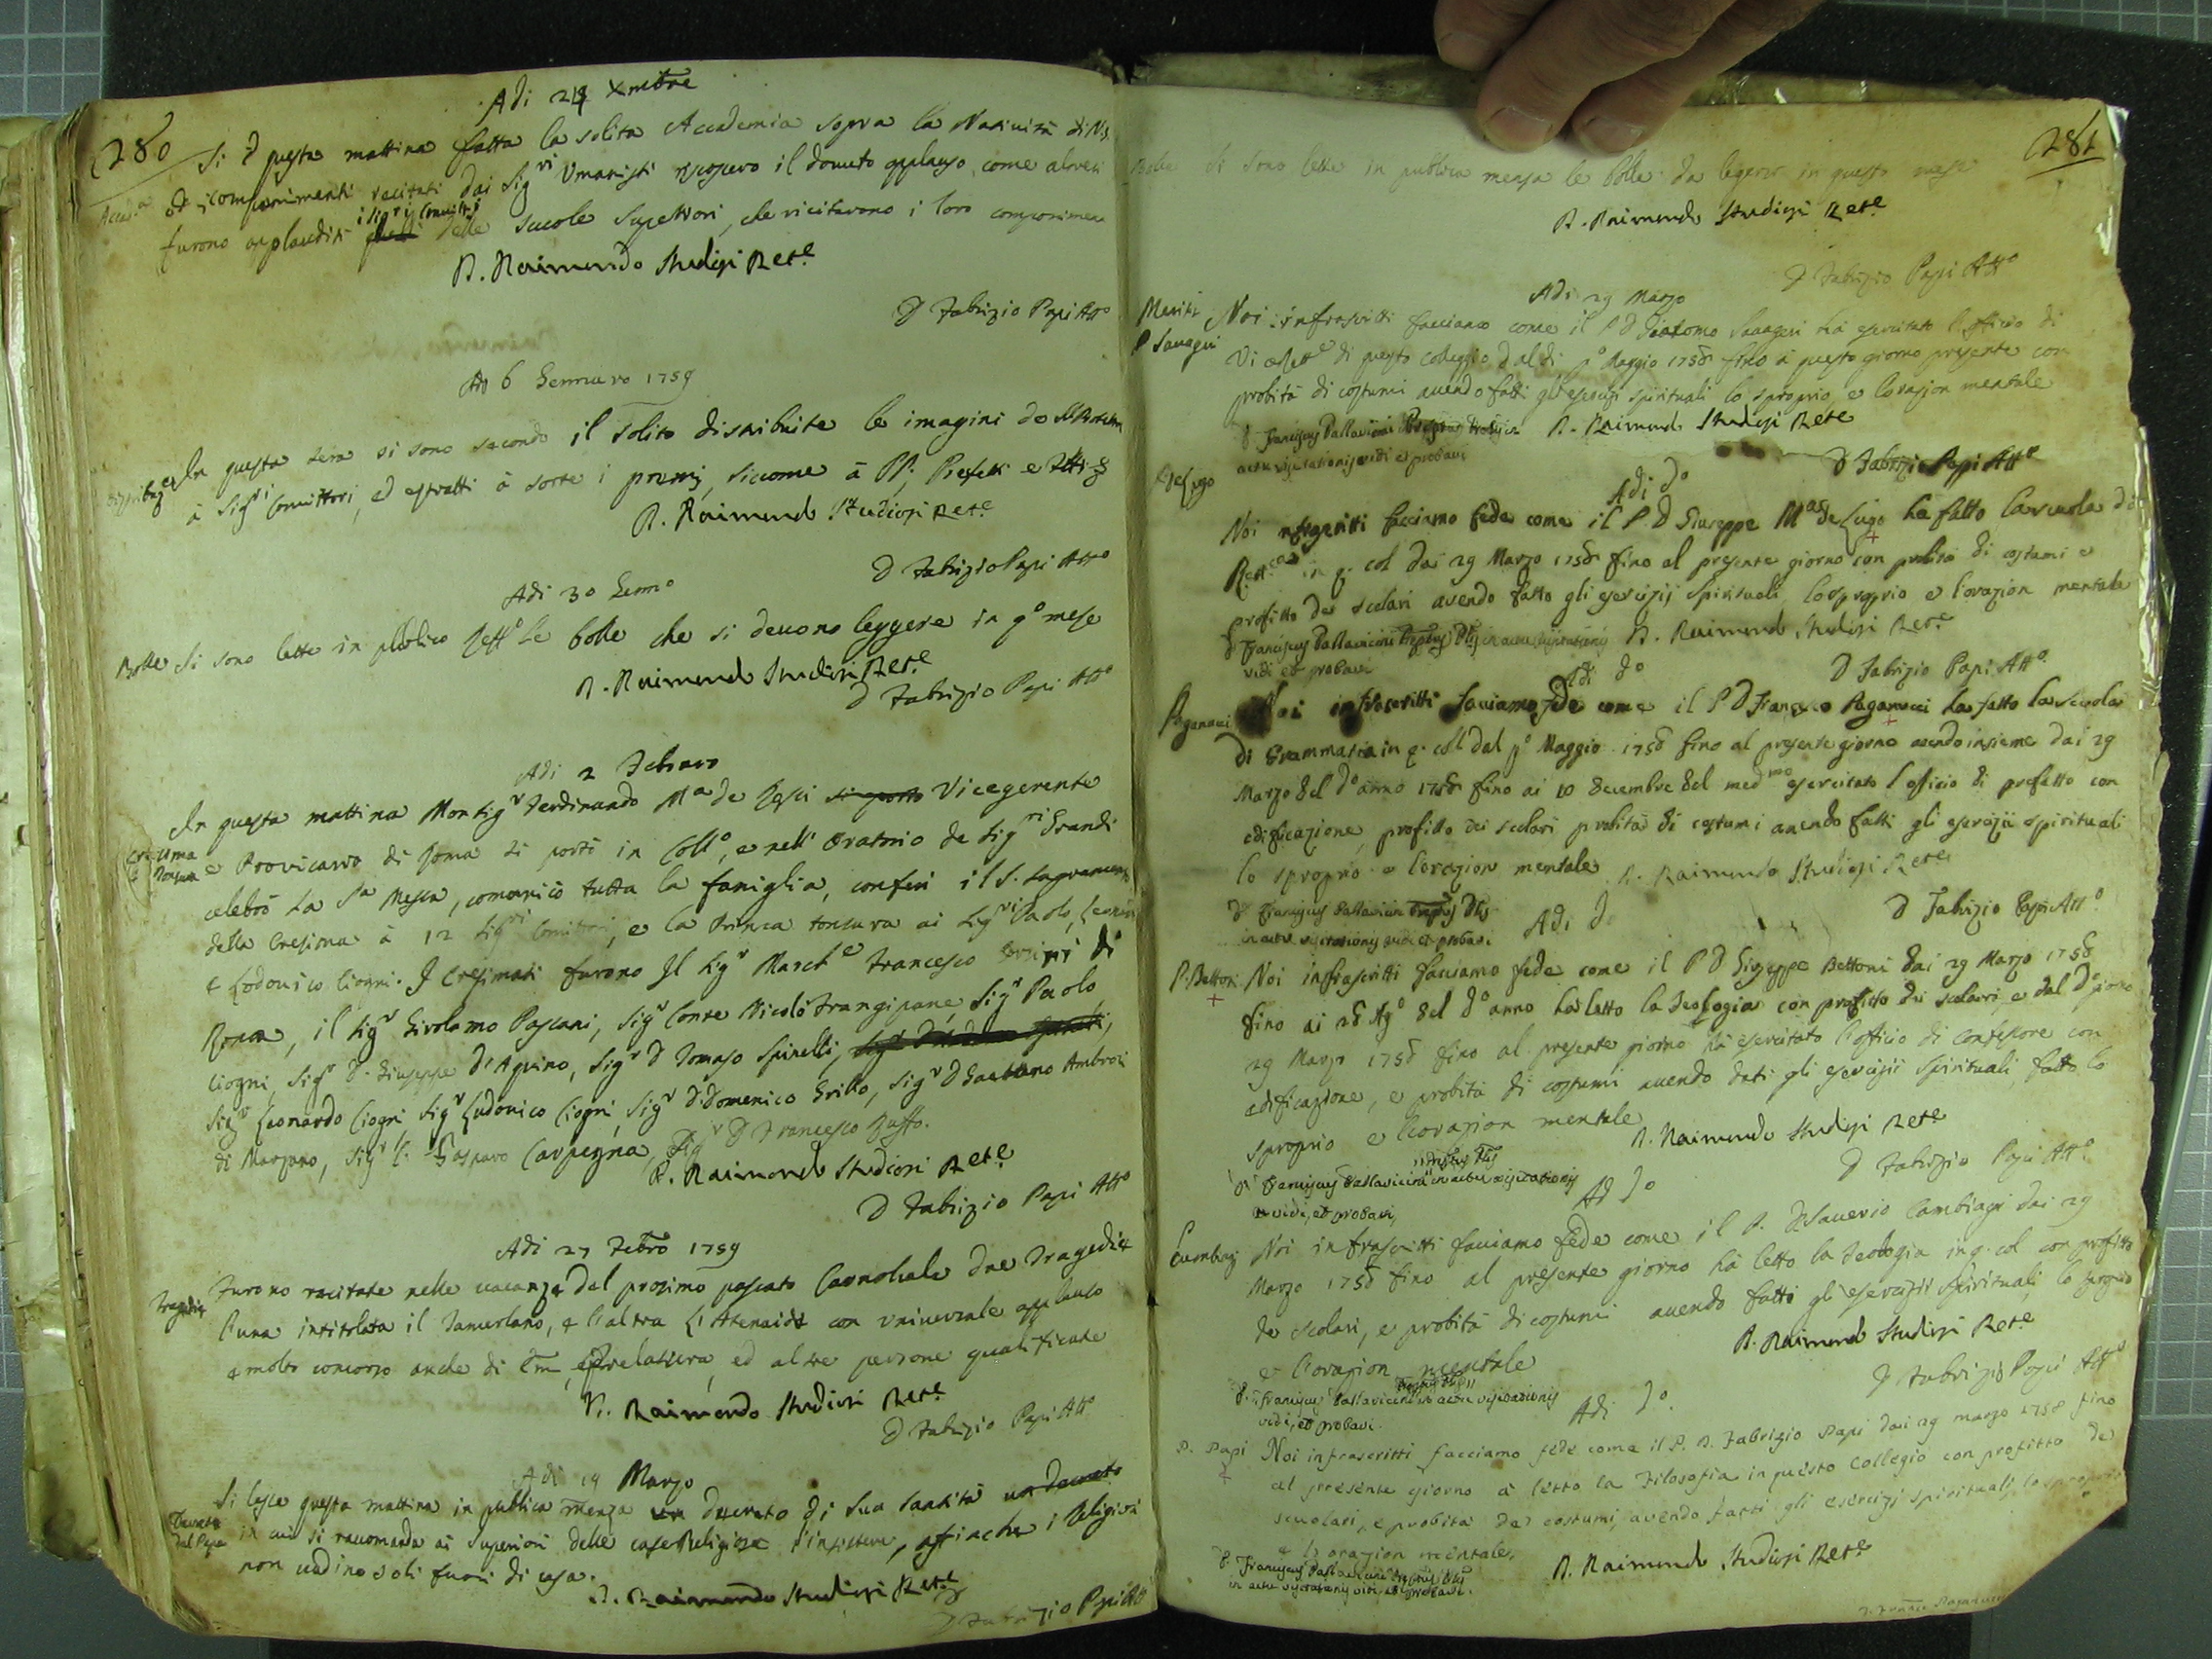 280
Adi 24 Xmbre
Accad.a
Si è questa mattina fatta la solita Accademia sopra la Natività di N.S.
ed i componimenti recitati dai Sig.ri Umanisti riscossero il dovuto applauso, come altresi
i Sig.ri Convitti
furono applauditi quelli delle scuole superiori, che recitarono i loro componimen
D. Raimondo Studiosi Rett.e
D Fabrizio Papi Att.o
Adi 6 Gennaro 1759
In questa sera si sono secondo il solito distribuite le imagini de SS. Protettori
à Sig.ri Convittori, ed estratti à sorte i premij, siccome à PP. Prefetti e
D. Raimondo Studiosi Rett.e
D Fabrizio Papi Att.o
Adi 30 Genn.o
Bolle Si sono lette in publico Reff.o le bolle che si devono leggere in q.o mese
D. Raimondo Studiosi Rett.e
D Fabrizio Papi Att.o
Adi 2 Febraro
In questa mattina Monsig.r Ferdinando M.a de Rossi si portò Vicegerente
Cresima e Tonsura
e Provicario di Roma si portò in Coll.o, e nell' Oratorio de Sig.ri Grandi
celebrò La S.a Messa, comunicò tutta la famiglia, conferì il S. Sagramento
della Cresima à 12 Sig.ri Convittori, e la Prima tonsura ai Sig.ri Paolo, Leonardo
e Lodovico Ciogni. I Cresimati furono Il Sig.r March.e Francesco di
Roma, il Sig.r Girolamo Passani, Sig.r Conte Nicolò Frangipane, Sig.r Paolo
Ciogni, Sig.r D. Giuseppe d'Aquino, Sig.r D Tomaso Spinelli,
Sig.r Leonardo Ciogni, Sig.r Ludovico Ciogni, Sig.r D. Domenico Grillo, Sig.r D Gaetano Ambrosi
di Marzano, Sig.r C. Gasparo Carpegna, Sig.r D Francesco Ruffo.
D. Raimondo Studiosi Rett.e
D Fabrizio Papi Att.o
Adi 27 Febro 1759
Tragedie
Furono recitate nelle vacanze del prossimo passato Carnevale due Tragedie
l'una intitolata il Tamerlano, e l'altra L'Atenaide con universale applauso
e molto concorso anche di Em., e Prelatura, ed altre persone qualificate
D. Raimondo Studiosi Rett.e
D Fabrizio Papi Att.o
Adi 19 Marzo
Decreto del Papa
Si lesse questa mattina in publica mensa un decreto di Sua Santità un decreto
in cui si raccomanda ai Superiori delle case Religiose d'insistere, affinche i Religiosi
non vadino soli fuori di casa.
D. Raimondo Studiosi Rett.e
D Fabrizio Papi Att.o
281
Bolle Si sono lette in publica mensa le bolle da legersi in questo mese
D. Raimondo Studiosi Rett.e
D Fabrizio Papi Att.o
Adi 29 Marzo
Meriti
P Savageri
Noi infrascritti facciamo come il P D Giacomo Savageri hà esercitato l'officio di
Vice Rett.e di questo collegio dal di p.o Maggio 1758 fino à questo giorno presente con
probità di costumi avendo fatti gl'esercizi spirituali lo sproprio, e l'orazion mentale
D Franciscus Pallavicini D. Raimondo Studiosi Rett.e
actu visitationis vidi et probavi
D Fabrizio Papi Att.o
Adi d.o
De Lugo
Noi infrascritti facciamo fede come il P D Giuseppe M.a de Lugo ha fatto la scuola di
Rett.ca in q. col. dai 29 Marzo 1758 fino al presente giorno con probità di costumi e
profitto dei scolari avendo fatto gli esercizij spirituali, lo sproprio e l'orazion mentale
D Franciscus Pallavicini in actu visitationis D. Raimondo Studiosi Rett.e
vidi et probavi
D Fabrizio Papi Att.o
Adi d.o
Paganucci
Noi infrascritti facciamo fede come il P D Francesco Paganucci ha fatto la scuola
di Grammatica in q. coll. dal p.o Maggio 1758 fino al presente giorno avendo insieme dai 29
Marzo del d.o anno 1758 fino ai 10 decembre del med.mo esercitato l'officio di prefetto con
edificazione, profitto dei scolari probità di costumi avendo fatti gli esercizij spirituali
lo sproprio e l'orazion mentale D. Raimondo Studiosi Rett.e
D Franciscus Pallavicini
in actu visitationis vidi et probavi
D Fabrizio Papi Att.o
Adi d.o
P. Bettoni
Noi infrascritti facciamo fede come il P D Giuseppe Bettoni dai 29 Marzo 1758
fino ai 28 Ag.o del d.o anno ha letto la Teologia con profitto dei scolari, e dal d.o giorno
29 Marzo 1758 fino al presente giorno hà esercitato l'officio di Confessore con
edificazione, e probità di costumi avendo dati gli esercizij spirituali, fatto lo
sproprio e l'orazion mentale
D. Raimondo Studiosi Rett.e
D Franciscus Pallavicini in actu visitationis
vidi, et probavi,
D Fabrizio Papi Att.o
Adi d.o
Cambiagi
Noi infrascritti facciamo fede come il P. D Saverio Cambiagi dai 29
Marzo 1758 fino al presente giorno hà letto la Teologia in q. col. con profitto
de scolari, e probità di costumi avendo fatti gli esercizij spirituali, lo sproprio
e l'orazion mentale
D. Raimondo Studiosi Rett.e
D. Franciscus Pallavicini in actu visitationis
vidi, et probavi.
D Fabrizio Papi Att.o
Adi d.o
P. Papi
Noi infrascritti facciamo fede come il P. D. Fabrizio Papi dai 29 marzo 1758 fino
al presente giorno à letto la Filosofia in questo Collegio con profitto de
scuolari, e probità dei costumi, avendo fatti gli esercizj spirituali, lo sproprio
e l'orazion mentale.
D. Franciscus Pallavicini
in actu visitationis vidi, et probavi.
D. Raimondo Studiosi Rett.e
D. Franc.o Paganucci